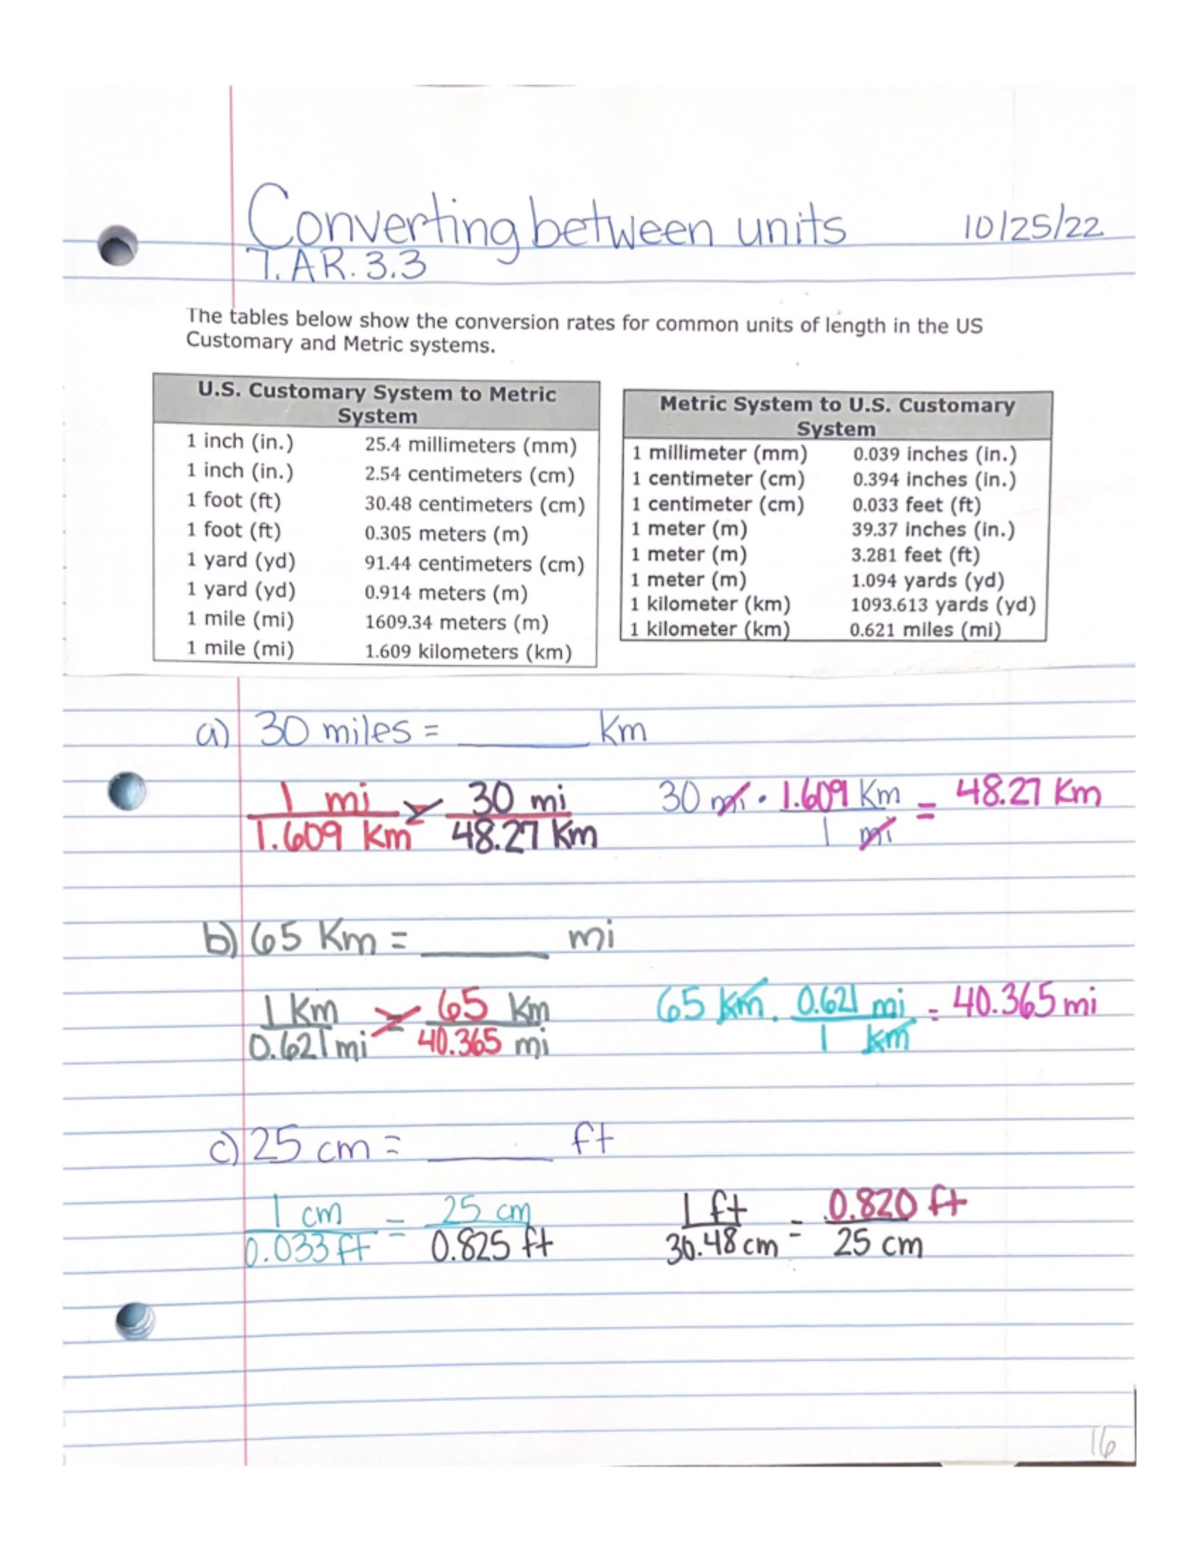 Converting between units 10/25/22
7.AR.3.3
The tables below show the conversion rates for common units of length in the US
Customary and Metric systems.
U.S. Customary System to Metric
System
1 inch (in.) 25.4 millimeters (mm)
1 inch (in.) 2.54 centimeters (cm)
1 foot (ft) 30.48 centimeters (cm)
1 foot (ft) 0.305 meters (m)
1 yard (yd) 91.44 centimeters (cm)
1 yard (yd) 0.914 meters (m)
1 mile (mi) 1609.34 meters (m)
1 mile (mi) 1.609 kilometers (km)
Metric System to U.S. Customary
System
1 millimeter (mm) 0.039 inches (in.)
1 centimeter (cm) 0.394 inches (in.)
1 centimeter (cm) 0.033 feet (ft)
1 meter (m) 39.37 inches (in.)
1 meter (m) 3.281 feet (ft)
1 meter (m) 1.094 yards (yd)
1 kilometer (km) 1093.613 yards (yd)
1 kilometer (km) 0.621 miles (mi)
a) 30 miles = ______ km
1 mi = 30 mi 30 mi · 1.609 Km = 48.27 Km
1.609 Km 48.27 Km 1 mi
b) 65 Km = ______ mi
1 Km = 65 Km 65 km · 0.621 mi = 40.365 mi
0.621 mi 40.365 mi 1 km
c) 25 cm = ______ ft
1 cm = 25 cm 1 ft = 0.820 ft
0.033 ft 0.825 ft 30.48 cm 25 cm
16